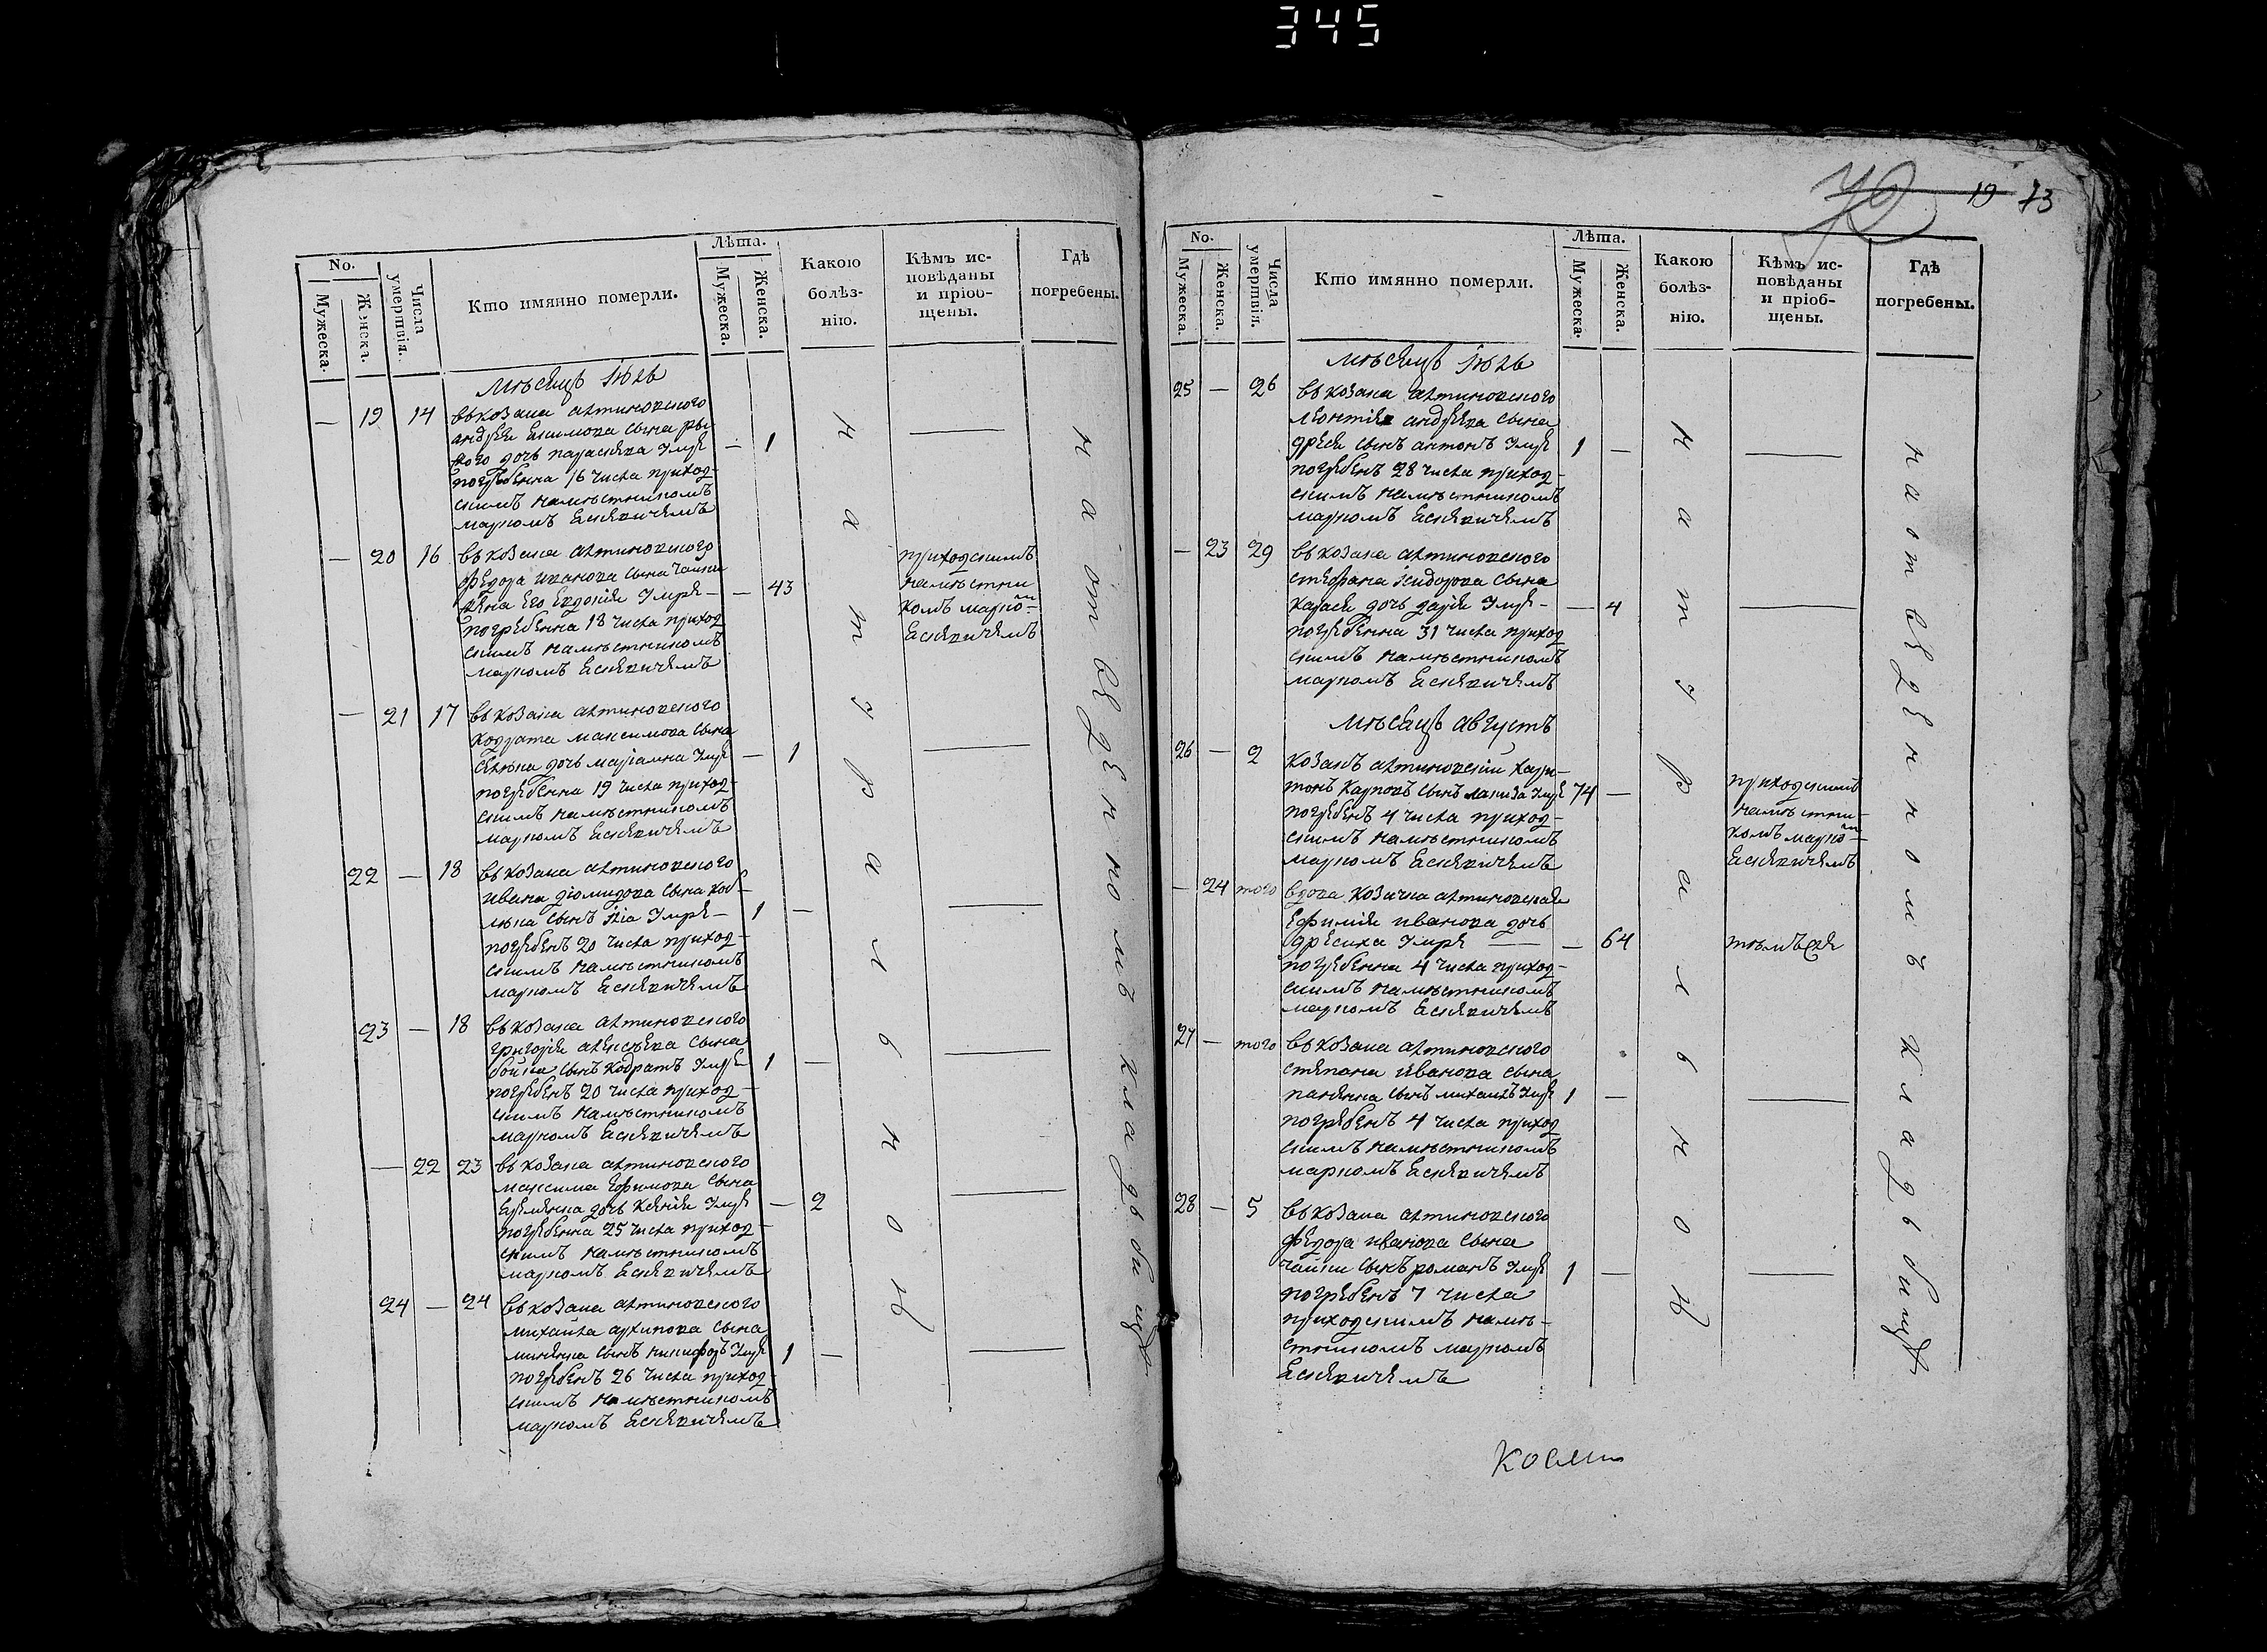 345
No.
Мужеска.
Женска.
Числа умертвія.
Кто имянно померли.
Лѣта.
Мужеска.
Женска.
Какою болѣз-
нію.
Кѣмъ ис-
повѣданы
и пріоб-
щены.
Гдѣ
погребены.
мѣсяцъ іюль
— 19 14 въ козака алтиновского
андрея екимова сына
дочь параскева умре — 1
погребенна 16 числа приход-
скимъ намѣстникомъ
маркомъ Есиевичемъ
— 20 16 въ козака алтиновского
федора иванова сына чайки
жена его евдокия умре — — 43
погребенна 18 числа приход
скимъ намѣстникомъ
маркомъ Есиевичемъ
приходскимъ
намѣстни
комъ марко
Есиевичемъ
— 21 17 въ козака алтиновского
кодрата максимова сына
дочь мариамна умре — 1
погребенна 19 числа приход-
скимъ намѣстникомъ
маркомъ Есиевичемъ
22 — 18 въ козака алтиновского
ивана диомидова сына
сынъ илїа умре — 1 —
погребенъ 20 числа приход-
скимъ намѣстникомъ
маркомъ Есиевичемъ
23 — 18 въ козака алтиновского
григория алексѣева сына
бойка сынъ кодратъ умре 1 —
погребенъ 20 числа приход-
скимъ намѣстникомъ
маркомъ Есиевичемъ
— 22 23 въ козака алтиновского
максима ефимова сына
дочь ксения умре — 2
погребенна 25 числа приход-
скимъ намѣстникомъ
маркомъ Есиевичемъ
24 — 24 въ козака алтиновского
михайла архипова сына
миненка сынъ никифоръ умре 1 —
погребенъ 26 числа приход
скимъ намѣстникомъ
маркомъ Есиевичемъ
натуральною
на отведенномъ кладбищѣ
19 73
No.
Мужеска.
Женска.
Числа умертвія.
Кто имянно померли.
Лѣта.
Мужеска.
Женска.
Какою
болѣз-
нію.
Кѣмъ ис-
повѣданы
и пріоб-
щены.
Гдѣ
погребены.
мѣсяцъ іюль
25 — 26 въ козака алтиновского
леонтия андреева сына
сынъ антонъ умре 1 —
погребенъ 28 числа приход-
скимъ намѣстникомъ
маркомъ Есиевичемъ
— 23 29 въ козака алтиновского
стефана исидорова сына
карася дочь дария умре — — 4
погребенна 31 числа приход
скимъ намѣстникомъ
маркомъ Есиевичемъ
мѣсяцъ августъ
26 — 2 козакъ алтиновский хари-
тонъ карповъ сынъ лакиза умре 74 —
погребенъ 4 числа приход-
скимъ намѣстникомъ
маркомъ Есиевичемъ
приходскимъ
намѣстни-
комъ марко
Есиевичемъ
— 24 того вдова козачка алтиновская
ефимия иванова дочь
умре — 64 тѣмъже
погребенна 4 числа приход-
скимъ намѣстникомъ
маркомъ Есиевичемъ
27 — того въ козака алтиновского
степана иванова сына
сынъ михаилъ умре 1 —
погребенъ 4 числа приход
скимъ намѣстникомъ
маркомъ Есиевичемъ
28 — 5 въ козака алтиновского
федора иванова сына
чайки сынъ романъ умре 1 —
погребенъ 7 числа
приходскимъ намѣ-
стникомъ маркомъ
Есиевичемъ
натуральною
на отведенномъ кладбищѣ